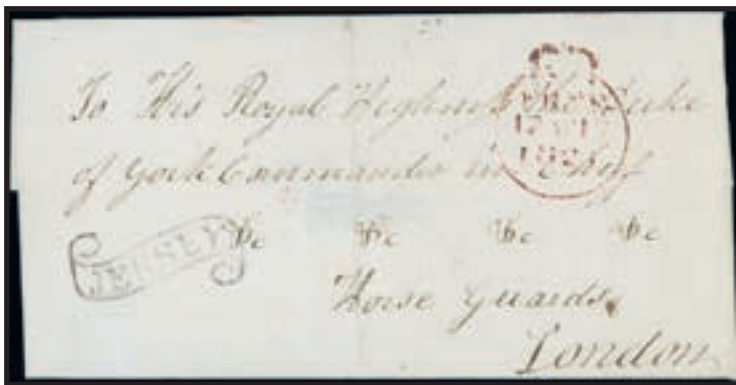 To His Royal Highness the Duke
of York Commander in Chief
&c &c &c &c
JERSEY
Horse Guards
London